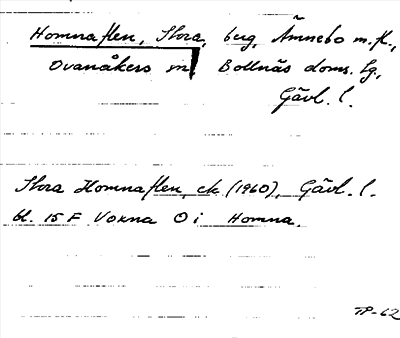 Homnaflen, Stora, berg, Ämnebo m.fl.,
Ovanåkers sn, Bollnäs doms. lg,
Gävl. l.
Stora Homnaflen, ek (1960), Gävl. l.
bl. 15 F Voxna O i Homna.
TP-62